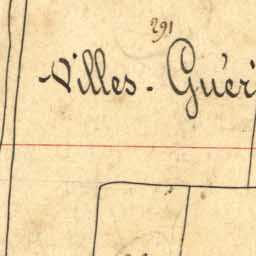 291
Villes - Guéri